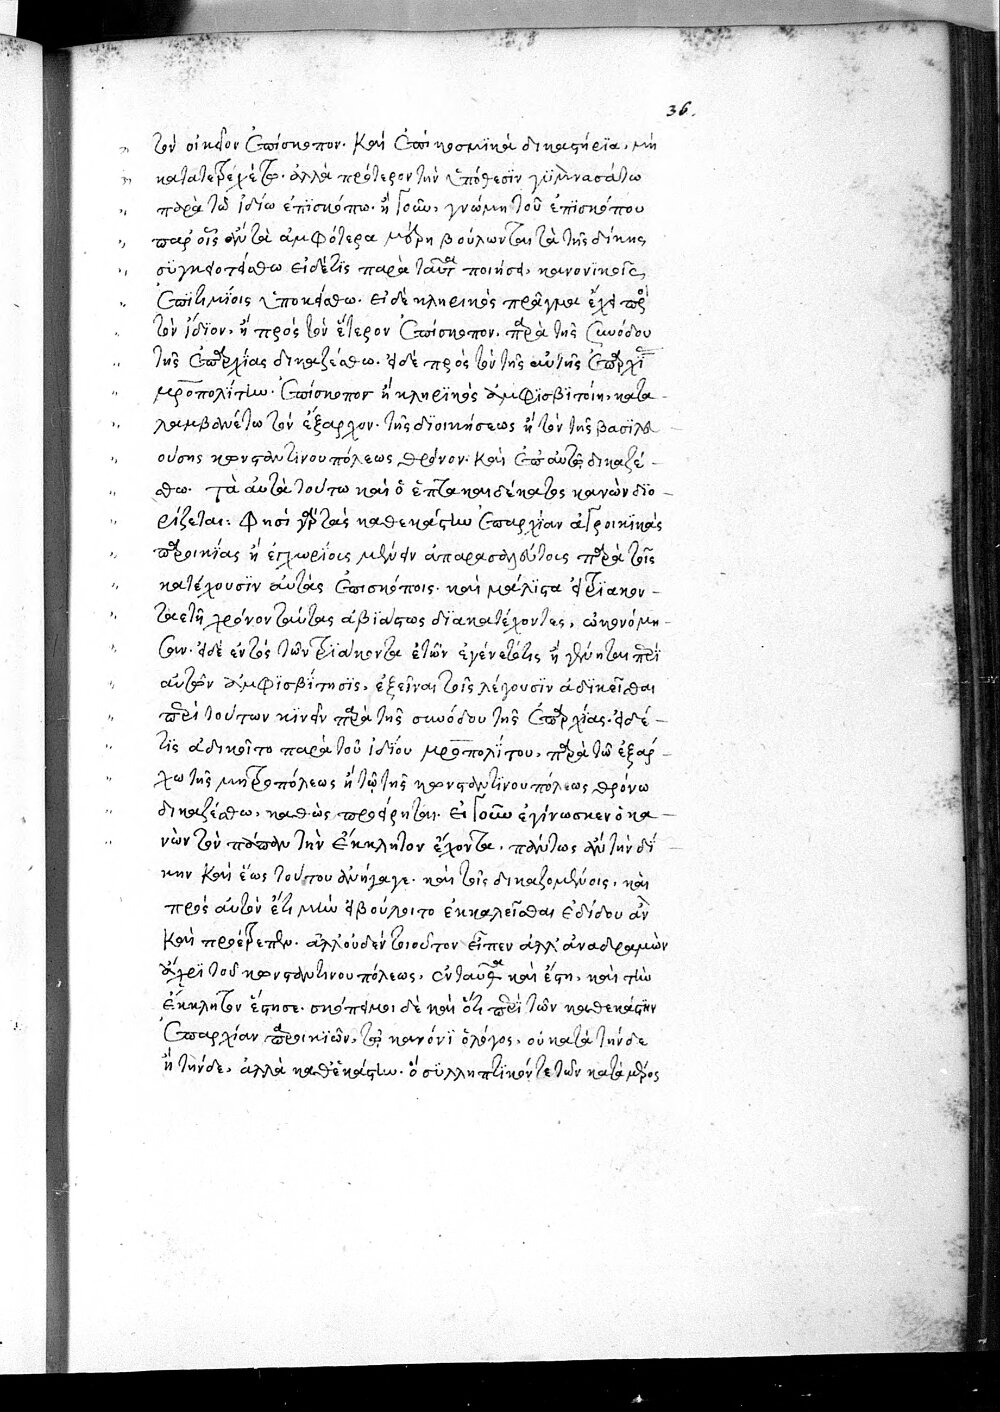 36.
τὸν οἰκεῖον ἐπίσκοπον. καὶ ἐπὶ κοσμϊκὰ δικαστήρϊα, μὴ
κατατρεχέτω. ἀλλὰ πρότερον τὴν ὑπόθεσϊν γϋμνασάτω
παρὰ τῶ ἰδίω ἐπϊσκόπω. ἢ γοῦν, γνώμη τοῦ ἐπϊσκόπου
παρ' οἷς ἂν τὰ ἀμφότερα μέρη βούλωνται τὰ τῆς δίκης
σϋγκροτείσθω εἰ δέ τϊς παρὰ ταῦτα ποιήσει, κανονϊκοῖς
ἐπϊτϊμΐοις ὑποκείσθω. εἰ δὲ κληρικὸς πρᾶγμα ἔχει πρὸς
τὸν ἴδϊον, ἢ πρὸς τὸν ἕτερον ἐπίσκοπον. παρὰ τῆς συνόδου
τῆς ἐπαρχίας δικαζέσθω. εἰ δὲ πρὸς τὸν τῆς αὐτῆς ἐπαρχί
μροπολίτην. ἐπίσκοπος ἢ κληρϊκὸς ἀμφϊσβϊτοίη, κατα
λαμβανέτω τὸν ἔξαρχον. τῆς δϊοικήσεως ἢ τὸν τῆς βασϊλευ
ούσης κωνσταντϊνουπόλεως θρόνον. καὶ ἐπ' αὐτῶ δικαζέ
σθω. τὰ αὐτὰ τούτω καὶ ὁ ἑπτακαιδέκατος κανὼν δϊο
ρίζεται: φησὶ γὰρ τὰς καθ' ἑκάστην ἐπαρχίαν ἀγροικϊκὰς
παροικίας ἢ ἐγχωρίοις μένειν ἀπαρασαλεύτοις παρὰ τοῖς
κατέχουσϊν αὐτὰς ἐπϊσκόποις. καὶ μάλϊστα εἰ τρϊακον
ταετῆ χρόνον ταύτας ἀβϊάστως δϊακατέχοντες, ὠκονόμη
σαν. εἰ δὲ ἐντὸς τῶν τρϊάκοντα ἐτῶν ἐγένετό τις ἢ γένηται περὶ
αὐτῶν ἀμφϊσβήτησϊς, ἐξεῖναι τοῖς λέγουσϊν ἀδικεῖσθαι
περὶ τούτων κϊνεῖν παρὰ τῆς συνόδου τῆς ἐπαρχίας. εἰ δέ
τϊς ἀδικοῖτο παρὰ τοῦ ἰδίου μροπολίτου, παρὰ τῶ ἐξάρ
χω τῆς μητροπόλεως ἢ τῶ τῆς κωνσταντϊνουπόλεως θρόνω
δικαζέσθω, καθὼς προείρηται. εἰ γοῦν ἐγίνωσκεν ὁ κα
νὼν τὸν πάπαν τὴν ἔκκλητον ἔχοντα, πάντως ἂν τὴν δί
κην καὶ ἕως τούτου ἀνήγαγε. καὶ τοῖς δικαζομένοις, καὶ
πρὸς αὐτὸν ἔτι μὴν εἰ βούλοιτο ἐκκαλεῖσθαι ἐδίδου ἂν
καὶ προέτρεπεν. ἀλλ' οὐδὲν τοιοῦτον εἶπεν ἀλλ' ἀναδραμὼν
ἄχρϊ τοῦ κωνσταντϊνουπόλεως, ἐνταῦθα καὶ ἔστη, καὶ τὴν
ἔκκλητον ἔστησε. σκόπει μοι δὲ καὶ ὅτι περὶ τῶν καθ' ἑκάστην
ἐπαρχίαν παροικϊῶν, τῶ κανόνϊ ὁ λόγος, οὐ κατὰ τήνδε
ἢ τήνδε, ἀλλὰ καθ' ἑκάστην. ὃ σϋλληπτϊκόν τε τῶν κατὰ μέρος